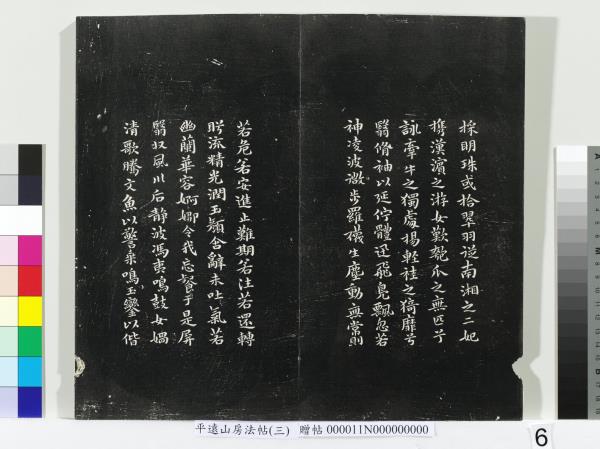 採明珠或拾翠羽從南湘之二妃
攜漢濱之游女歎匏瓜之無匹兮
詠牽牛之獨處揚輕袿之猗靡兮
翳脩袖以延佇體迅飛鳧飄忽若
神凌波微步羅襪生塵動無常則
若危若安進止難期若往若還轉
眄流精光潤玉顏含辭未吐氣若
幽蘭華容婀娜令我忘餐于是屏
翳收風川后靜波馮夷鳴鼓女媧
清歌騰文魚以警乘鳴玉鑾以偕
平遠山房法帖(三) 贈帖 000011N000000000
6